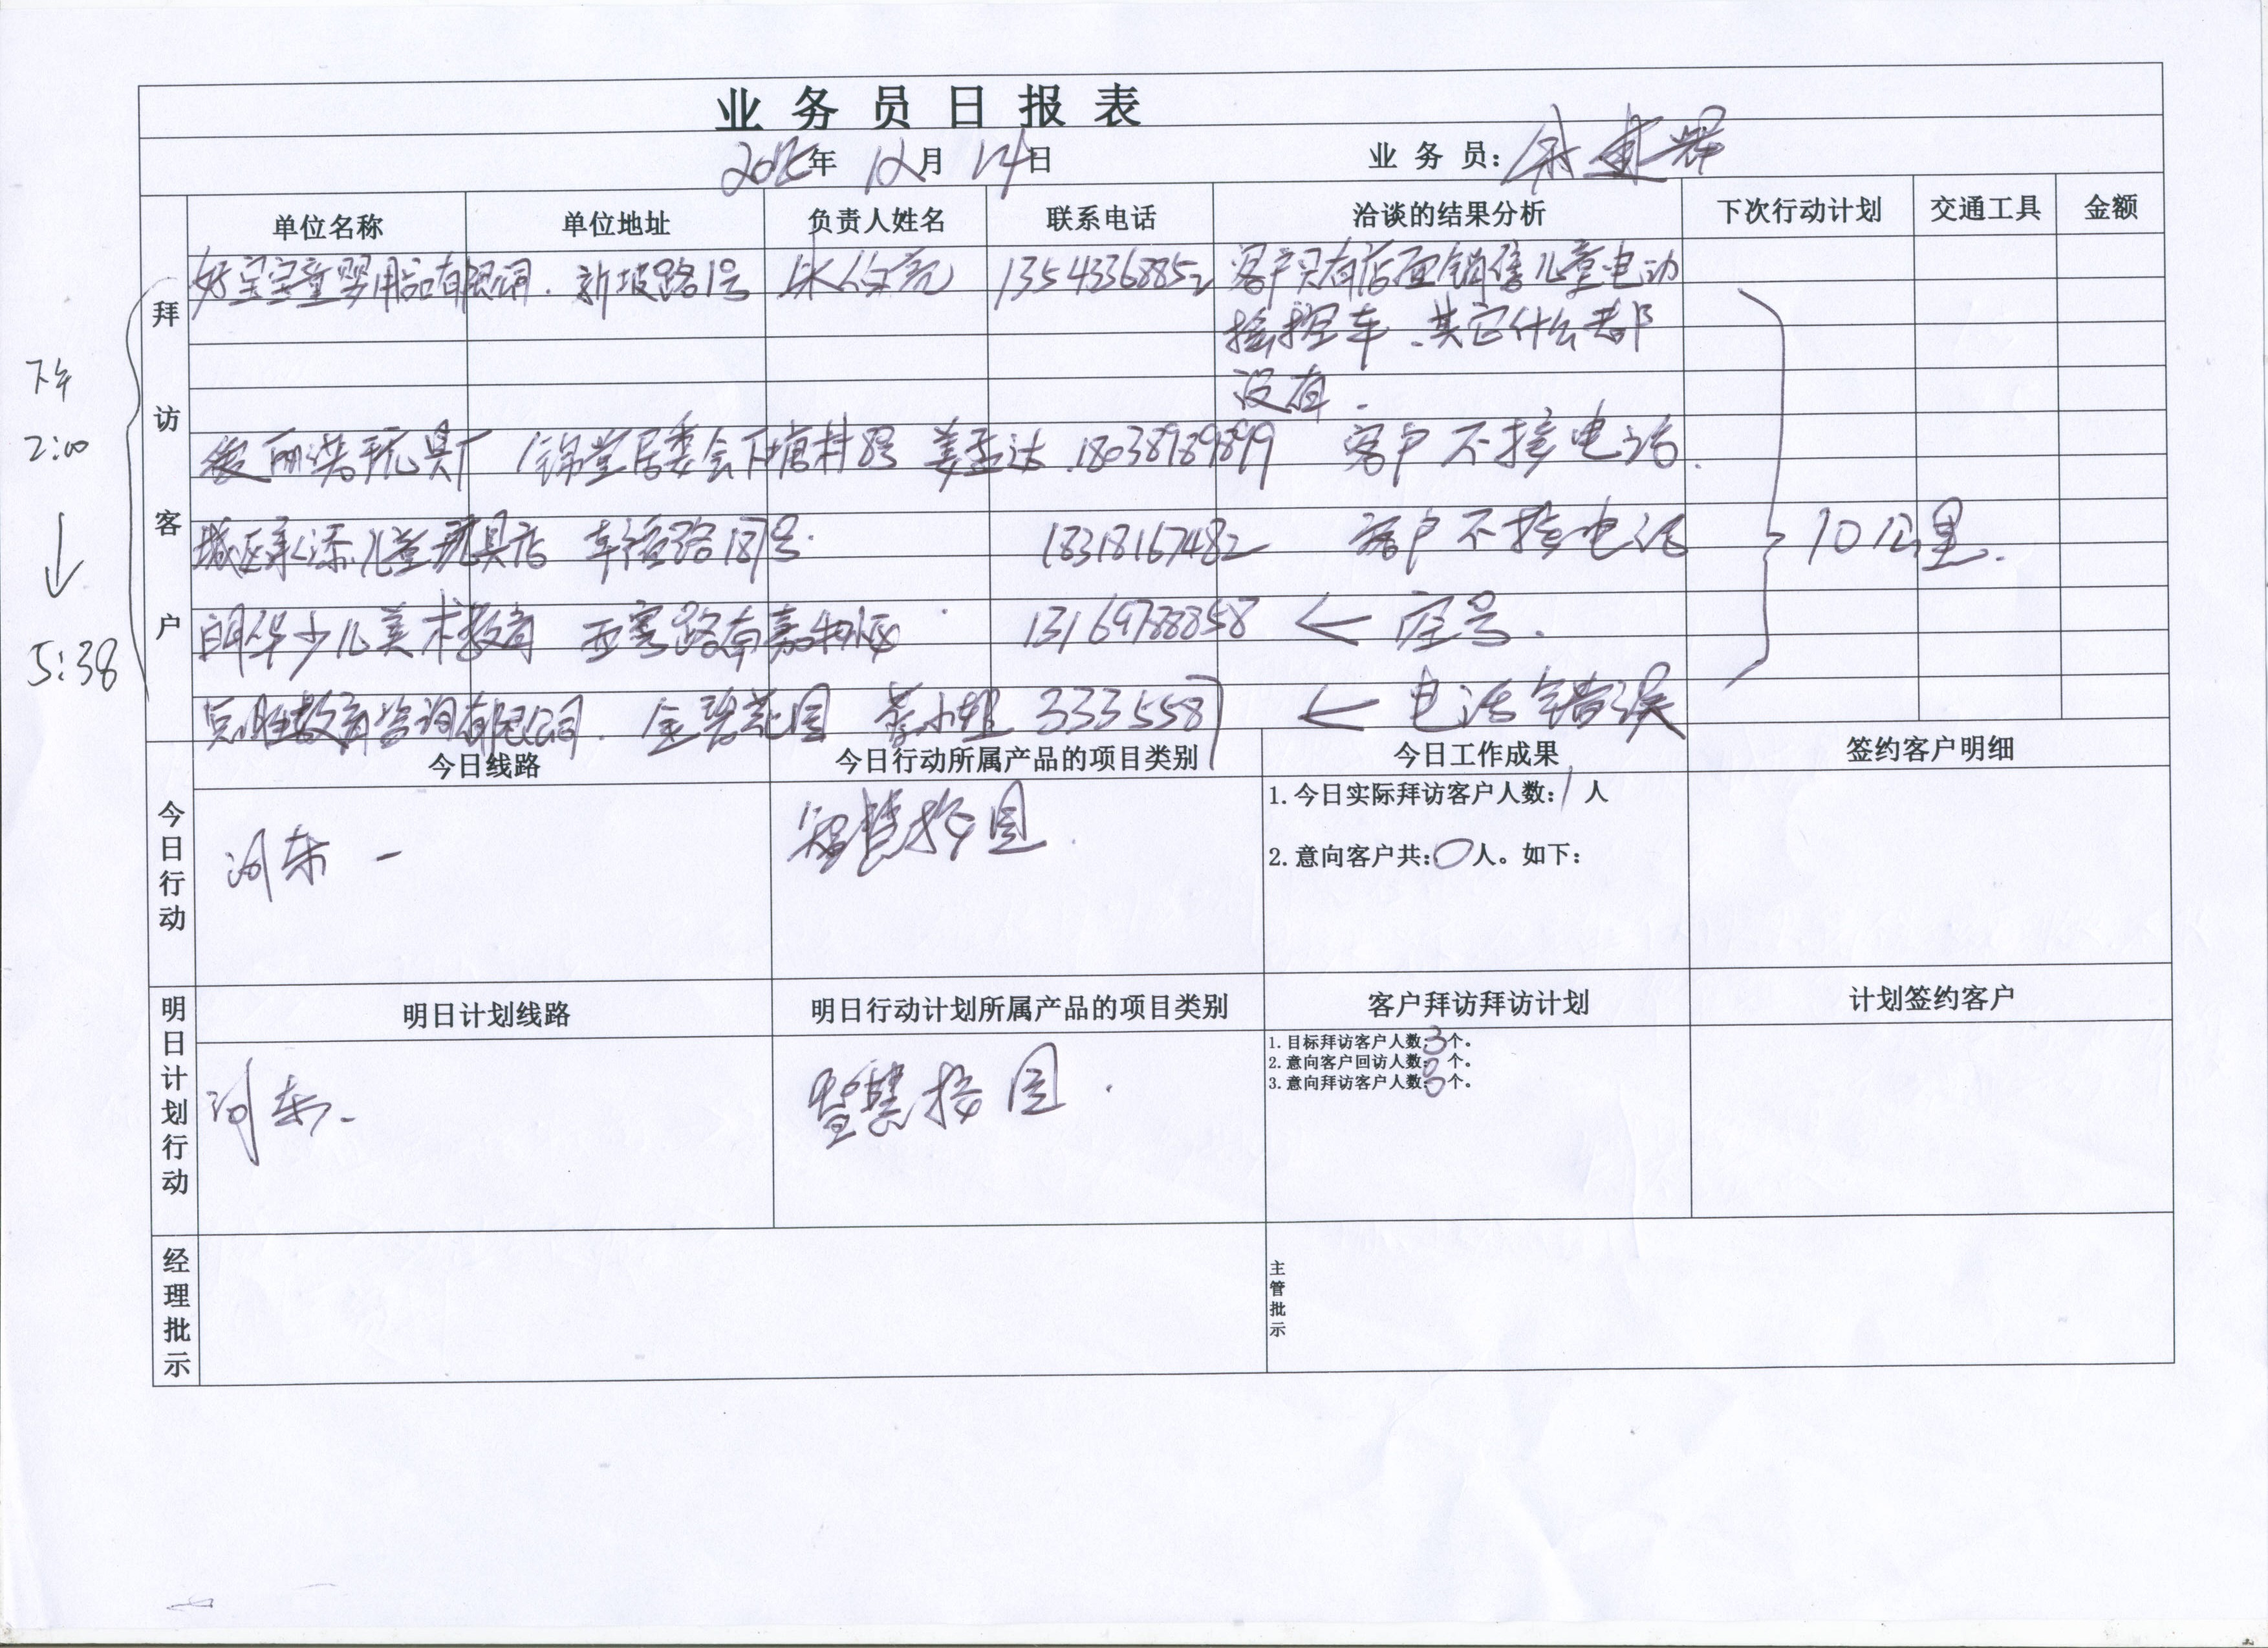 业务员日报表
年 12月 14日 业务员:
单位名称 单位地址 负责人姓名 联系电话 洽谈的结果分析 下次行动计划 交通工具 金额
拜访客户
下午 2:00 ↓ 5:38
好宝宝童婴用品有限公司. 新坡路1号 13543368852 客户只有店面销售儿童电动
摇摆车.其它什么都
没有.
玩具厂 锦堂居委会下塘村8号 姜孟达.18038989899 客户不接电话.
城区 儿童玩具店 181号. 18318167482 客户不接电话
10公里.
少儿美术教育 13169788858 ← 空号.
教育咨询有限公司. 金碧花园 蔡小姐 3335581 ← 电话错误
今日行动
今日线路 今日行动所属产品的项目类别 今日工作成果 签约客户明细
河东- 智慧校园.
1.今日实际拜访客户人数:1人
2.意向客户共:0人。如下:
明日计划行动
明日计划线路 明日行动计划所属产品的项目类别 客户拜访拜访计划 计划签约客户
河东. 智慧校园.
1.目标拜访客户人数:3个。
2.意向客户回访人数:0个。
3.意向拜访客户人数:0个。
经理批示
主管批示